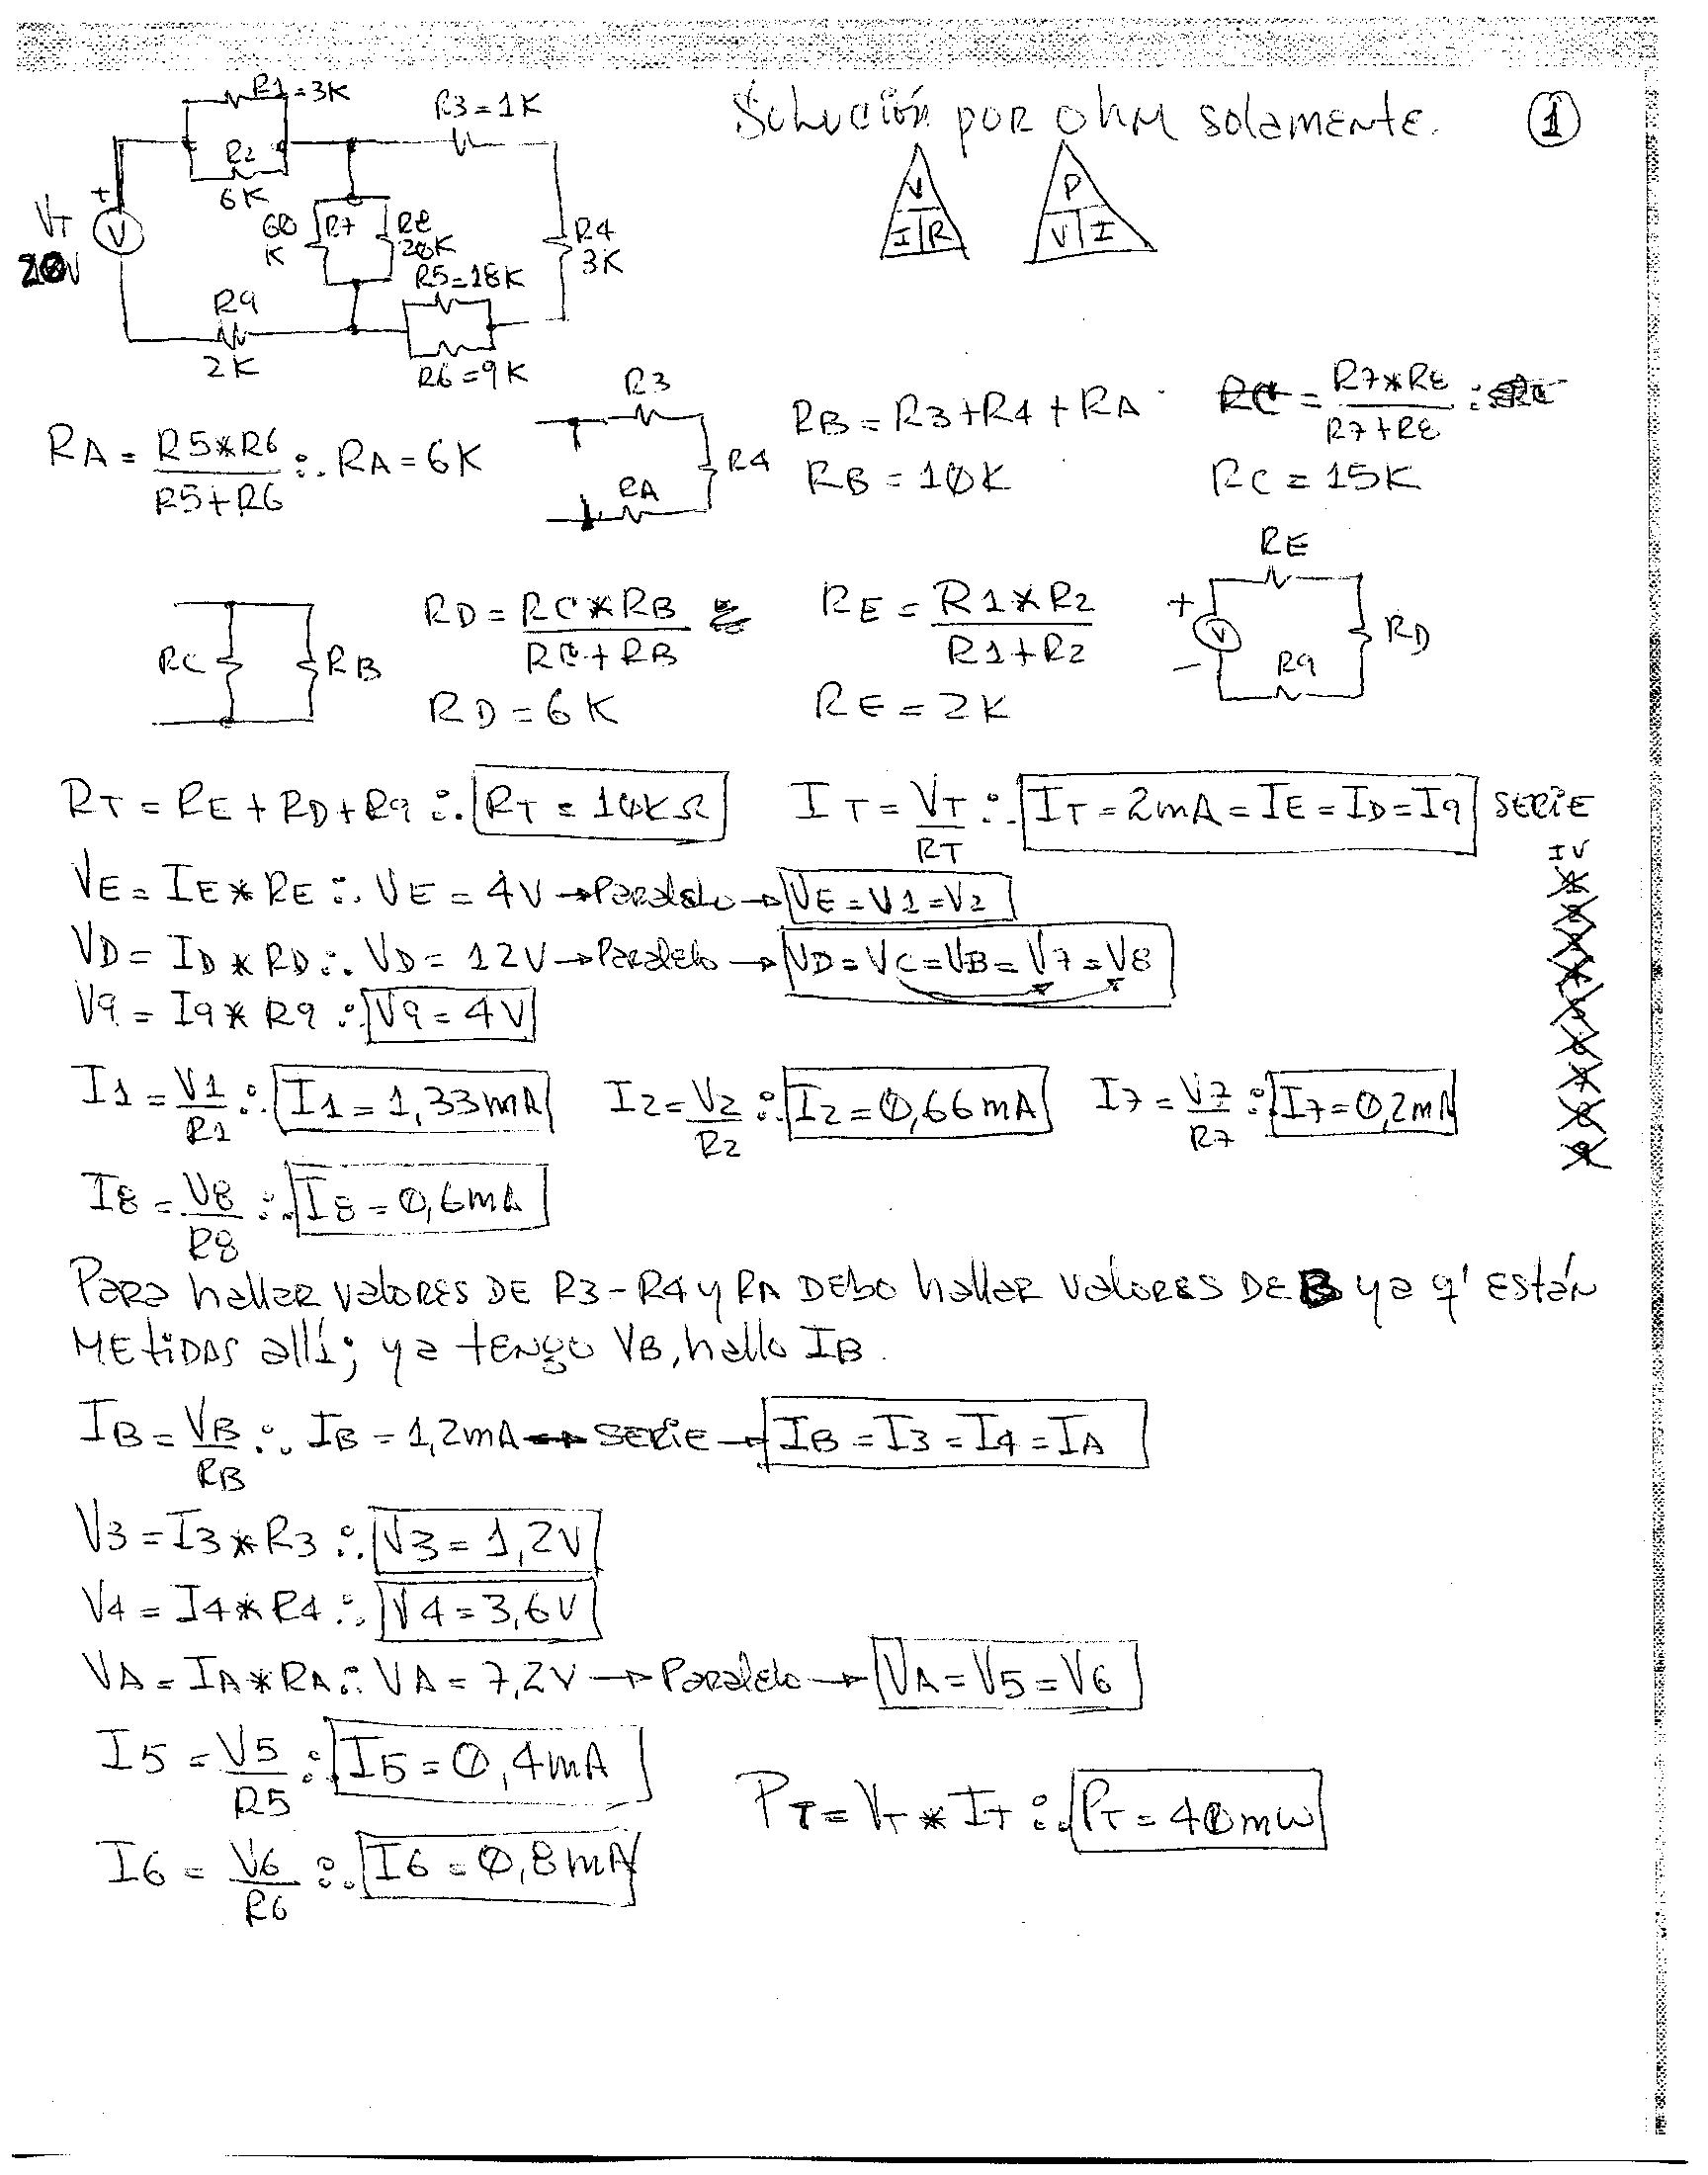 R1=3K
R3=1K
Solución por Ohm solamente. 1
R2
6K
V
I R
P
V I
+
VT
V
20V
60
K
R7
R8
20K
R4
3K
R5=18K
R9
2K
R6=9K
R3
RA = R5*R6 / R5+R6 ∴ RA = 6K
R4
RA
RB = R3+R4+RA
RB = 10K
RC = R7*R8 / R7+R8 ∴
RC = 15K
RC
RB
RD = RC*RB / RC+RB
RD = 6K
RE = R1*R2 / R1+R2
RE = 2K
RE
+
V
-
RD
R9
RT = RE+RD+R9 ∴ RT = 10KΩ
IT = VT / RT ∴ IT = 2mA = IE = ID = I9 SERIE
VE = IE*RE ∴ VE = 4V → Paralelo → VE = V1 = V2
VD = ID*RD ∴ VD = 12V → Paralelo → VD = VC = VB = V7 = V8
V9 = I9*R9 ∴ V9 = 4V
IV
1
2
3
4
5
6
7
8
9
I1 = V1 / R1 ∴ I1 = 1,33mA
I2 = V2 / R2 ∴ I2 = 0,66mA
I7 = V7 / R7 ∴ I7 = 0,2mA
I8 = V8 / R8 ∴ I8 = 0,6mA
Para hallar valores DE R3-R4 y RA DEbo hallar valores DE B ya q' están
METiDAS allí; ya tengo VB, hallo IB.
IB = VB / RB ∴ IB = 1,2mA → SERIE → IB = I3 = I4 = IA
V3 = I3*R3 ∴ V3 = 1,2V
V4 = I4*R4 ∴ V4 = 3,6V
VA = IA*RA ∴ VA = 7,2V → Paralelo → VA = V5 = V6
I5 = V5 / R5 ∴ I5 = 0,4mA
PT = VT * IT ∴ PT = 40mW
I6 = V6 / R6 ∴ I6 = 0,8mA